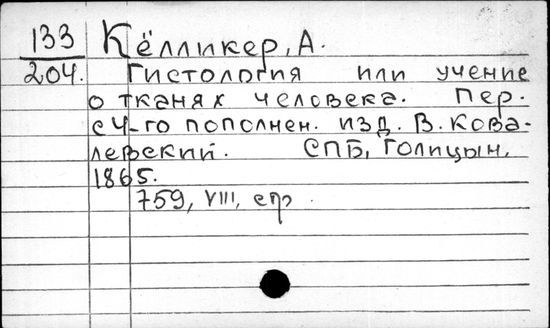 133 Кёлликер, А.
204. Гистология или учение
о тканях человека. Пер.
с 4-го пополнен. изд. В. Кова-
левский. СПБ, Голицын,
1865.
759, VIII, стр.